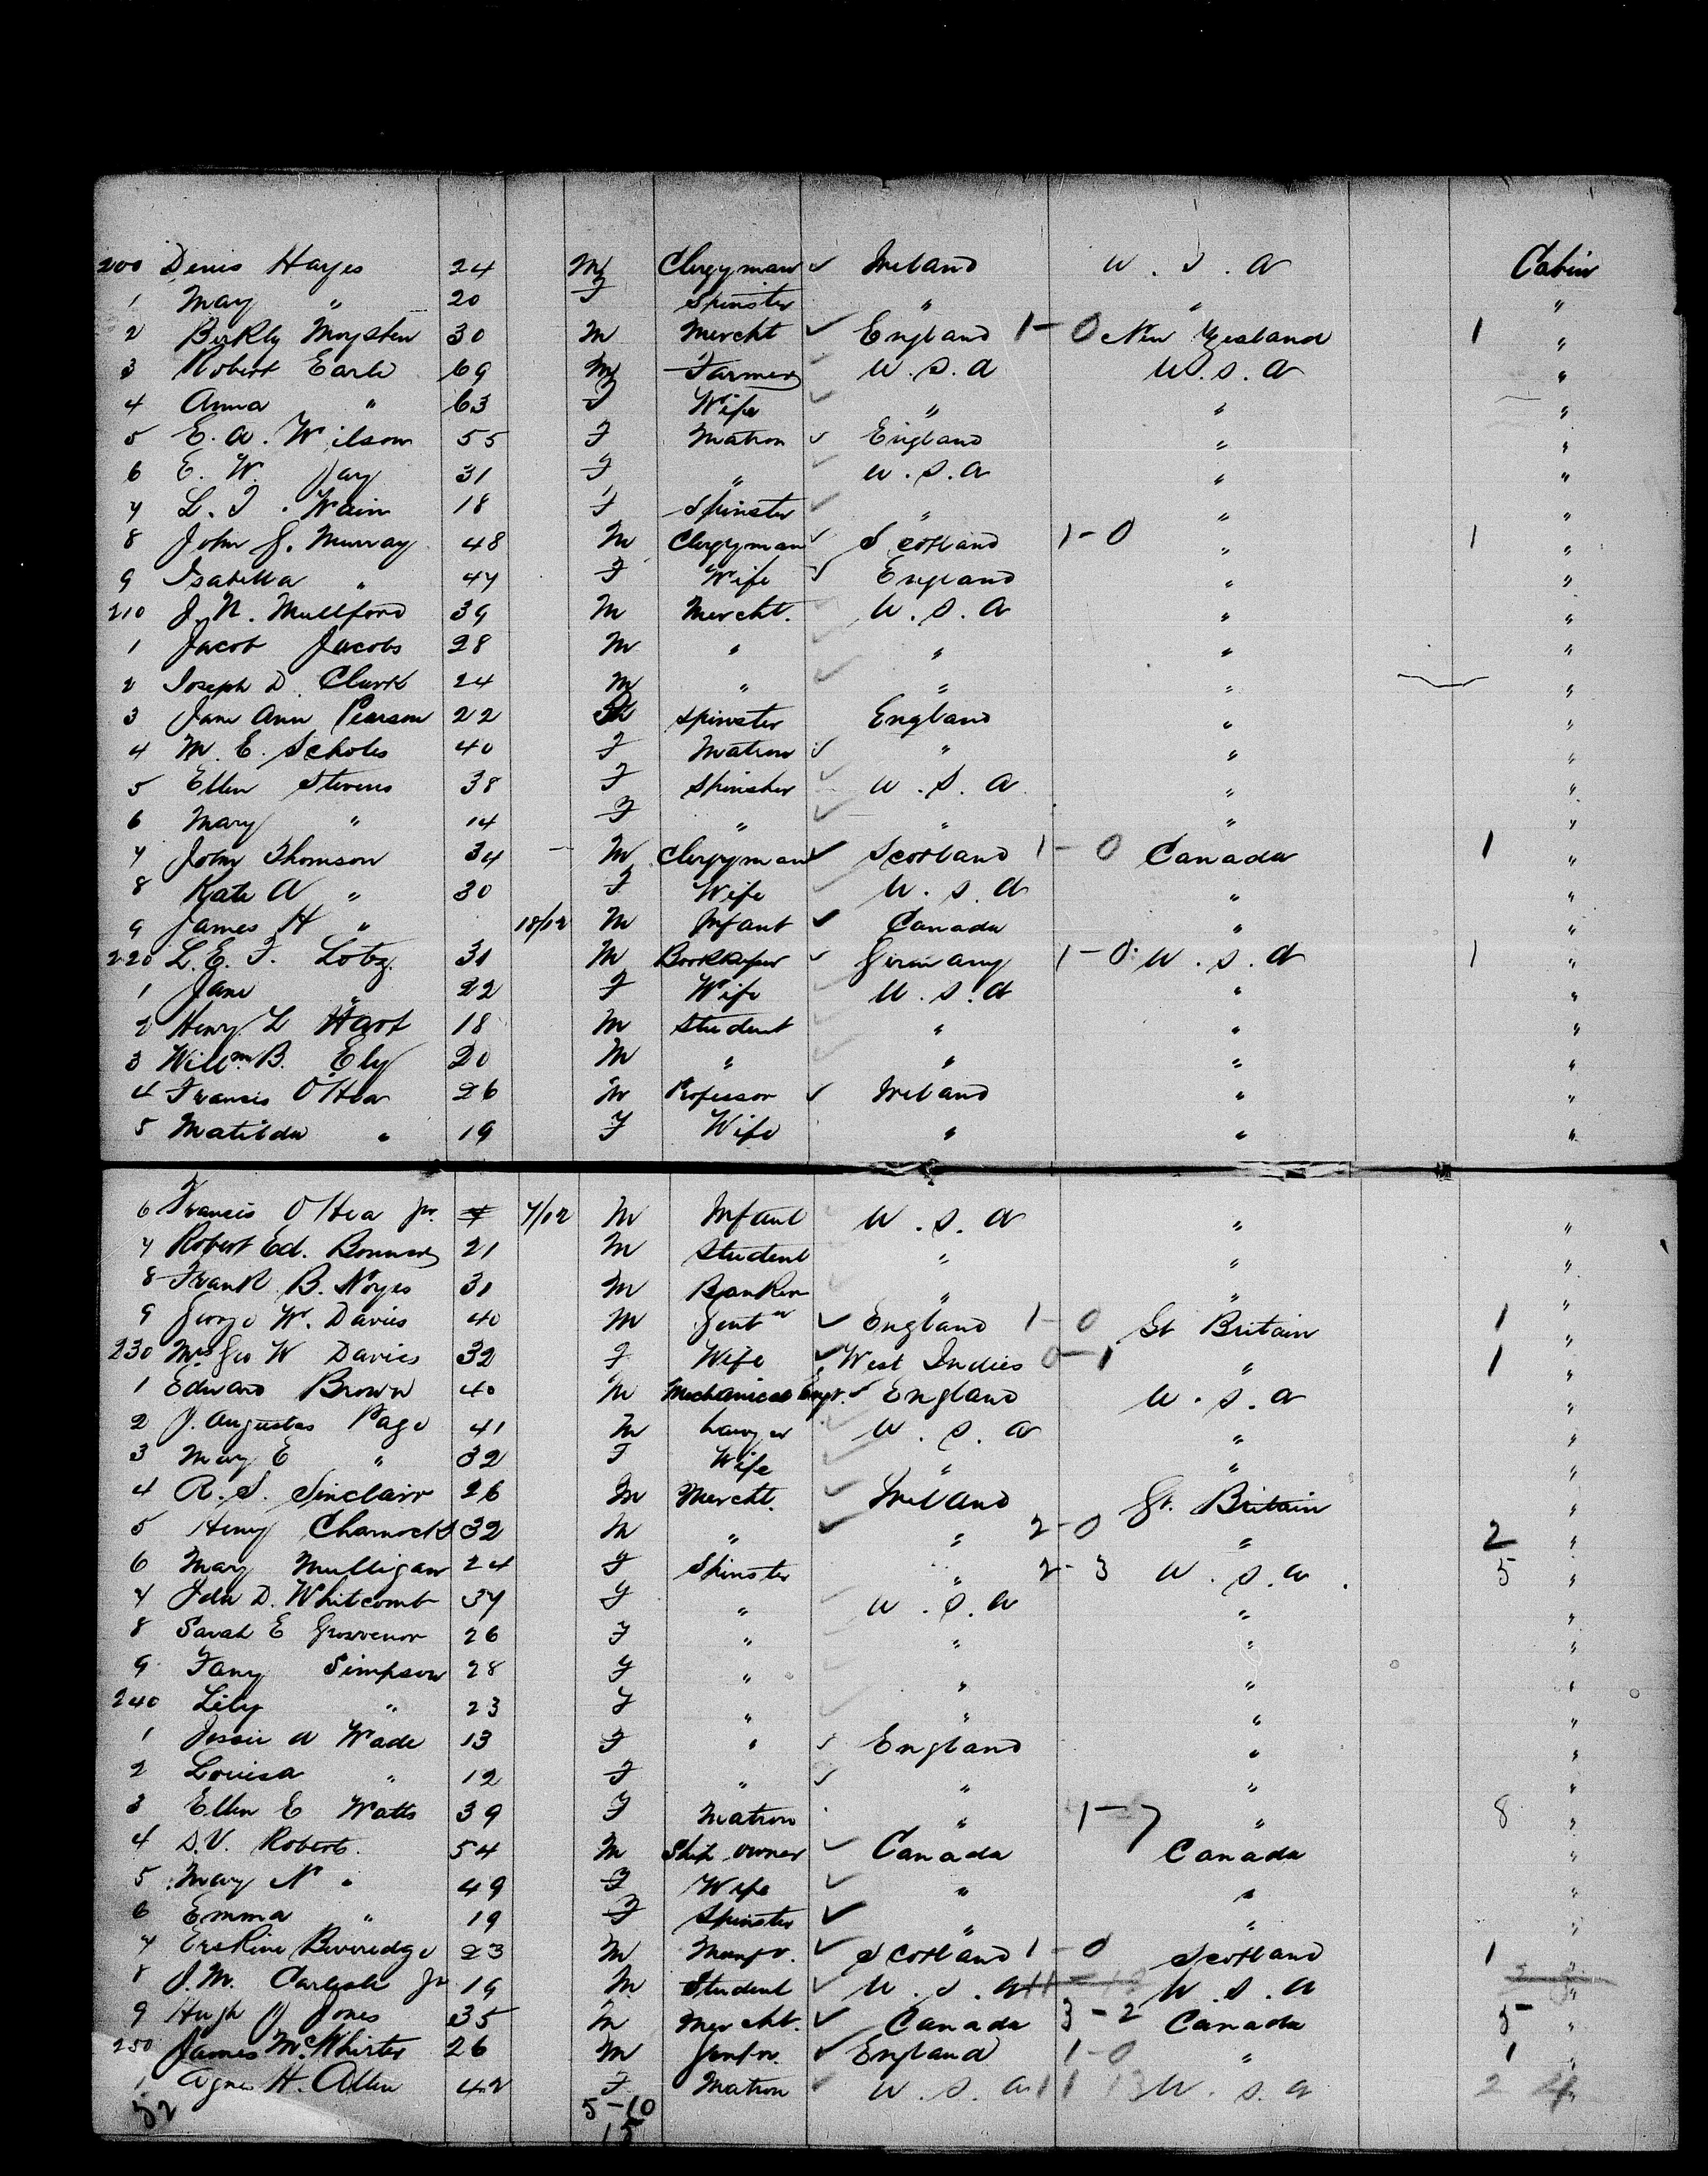 200 Denis Hayes 24 M Clergyman Ireland U.S.A Cabin
1 May " 20 F Spinster " " "
2 Moysten 30 M Mercht England 1-0 New Zealand 1 "
3 Robert Earle 69 M Farmer U.S.A U.S.A "
4 Anna " 63 F Wife " " "
5 E. A. Wilson 55 F Matron England " "
6 E. W. Jay 31 F " U.S.A " "
7 L. F. Wain 18 F Spinster " " "
8 John G. Murray 48 M Clergyman Scotland 1-0 " 1 "
9 Isabella " 47 F Wife England " "
210 J. N. Mullford 39 M Mercht. U.S.A " "
1 Jacob Jacobs 28 M " " " "
2 Joseph D. Clark 24 M " " " "
3 Jane Ann Pearson 22 Spinster England " "
4 M. E. Scholes 40 F Matron " " "
5 Ellen Stevens 38 F Spinster U.S.A " "
6 Mary " 14 F " " " "
7 John Thomson 34 M Clergyman Scotland 1-0 Canada 1 "
8 Kate A " 30 F Wife U.S.A " "
9 James H " 18/12 M Infant Canada " "
220 L. E. F. Lotz. 31 M Bookkeeper Germany 1-0 U.S.A 1 "
1 Jane " 22 F Wife U.S.A " "
2 Henry L Hart 18 M Student " " "
3 Willm B. Ely 20 M " " " "
4 Francis O'Hea 26 M Professor Ireland " "
5 Matilda " 19 F Wife " " "
6 Francis O'Hea jr. 7/12 M Infant U.S.A " "
7 Robert Ed. Bonner 21 M Student " " "
8 Frank B. Noyes 31 M Banker " " "
9 George W. Davies 40 M Gentn England 1-0 Gt Britain 1 "
230 Mrs Geo W Davies 32 F Wife West Indies 0-1 " 1 "
1 Edward Brown 40 M Mechanical Engr. England U.S.A "
2 J. Augustus Page 41 M Lawyer U.S.A " "
3 Mary E " 32 F Wife " " "
4 R. S. Sinclair 26 M Mercht. Ireland Gt. Britain "
5 Henry Charnock 32 M " " 2-0 " 2 "
6 Mary Mulligan 24 F Spinster " 2-3 U.S.A. 5 "
7 Ida D. Whitcomb 37 F " U.S.A " "
8 Sarah E Grosvenor 26 F " " " "
9 Fany Simpson 28 F " " " "
240 Lily " 23 F " " " "
1 Jessie A Wade 13 F " England " "
2 Louisa " 12 F " " " "
3 Ellen E Watts 39 F Matron " 1-7 " 8 "
4 D.V. Roberts. 54 M Ship owner Canada Canada "
5 Mary N " 49 F Wife " " "
6 Emma " 19 F Spinster " " "
7 Erskine Beveredge 23 M Manfr. Scotland 1-0 Scotland 1 "
8 J. M. Carlisle Jr 19 M Student U.S.A U.S.A "
9 Hugh J Jones 35 M Mercht. Canada 3-2 Canada 5 "
250 James McWhirter 26 M Gentn. England 1-0 " 1 "
1 Agnes H. Allen 42 F Matron U.S.A 11 13 U.S.A 24 "
52 5-10
15